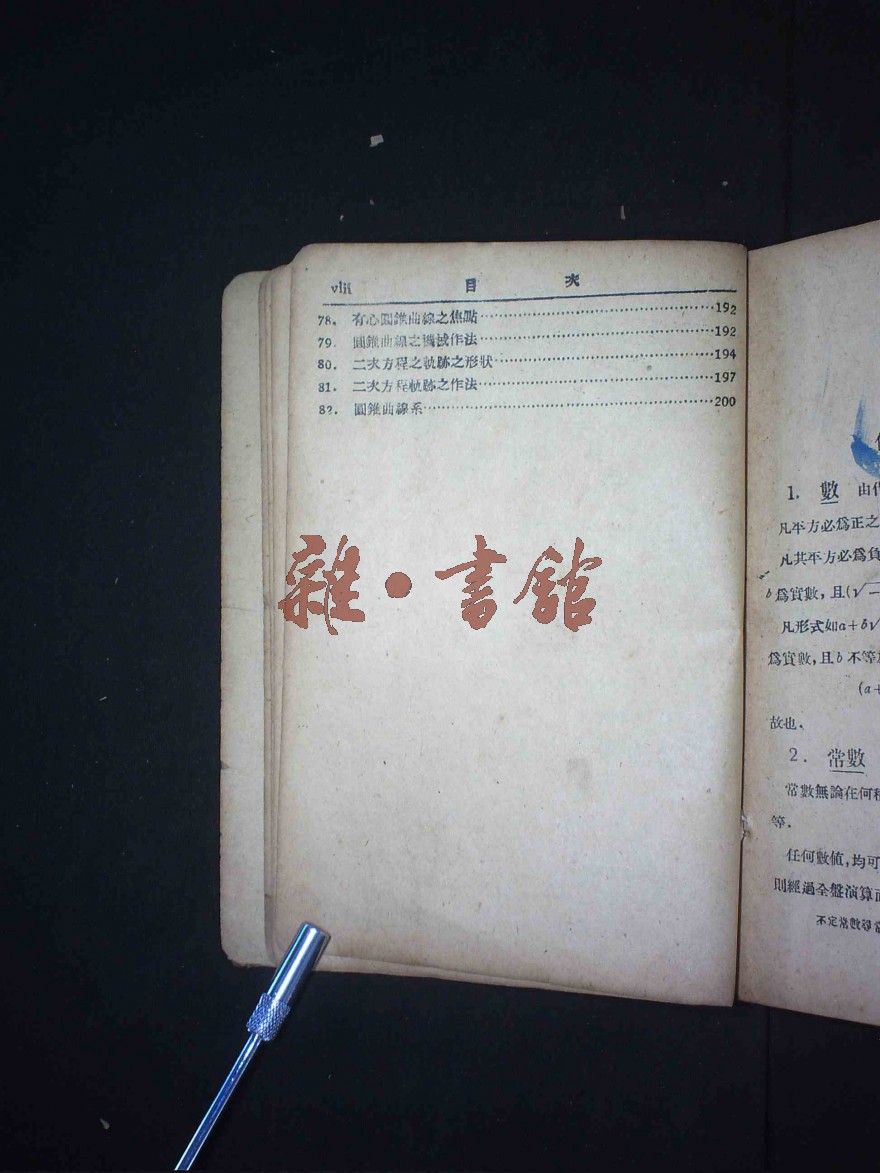 viii 目次
78. 有心圓錐曲線之焦點 192
79. 圓錐曲線之機械作法 192
80. 二次方程之軌跡之形狀 194
81. 二次方程軌跡之作法 197
82. 圓錐曲線系 200
雜·書館
1. 數 由
凡平方必爲正之
凡其平方必爲負
b爲實數，且(√
凡形式如a+b√
爲實數，且b不等
(a+
故也．
2. 常數
常數無論在何
等．
任何數值，均可
則經過全盤演算
不定常數尋